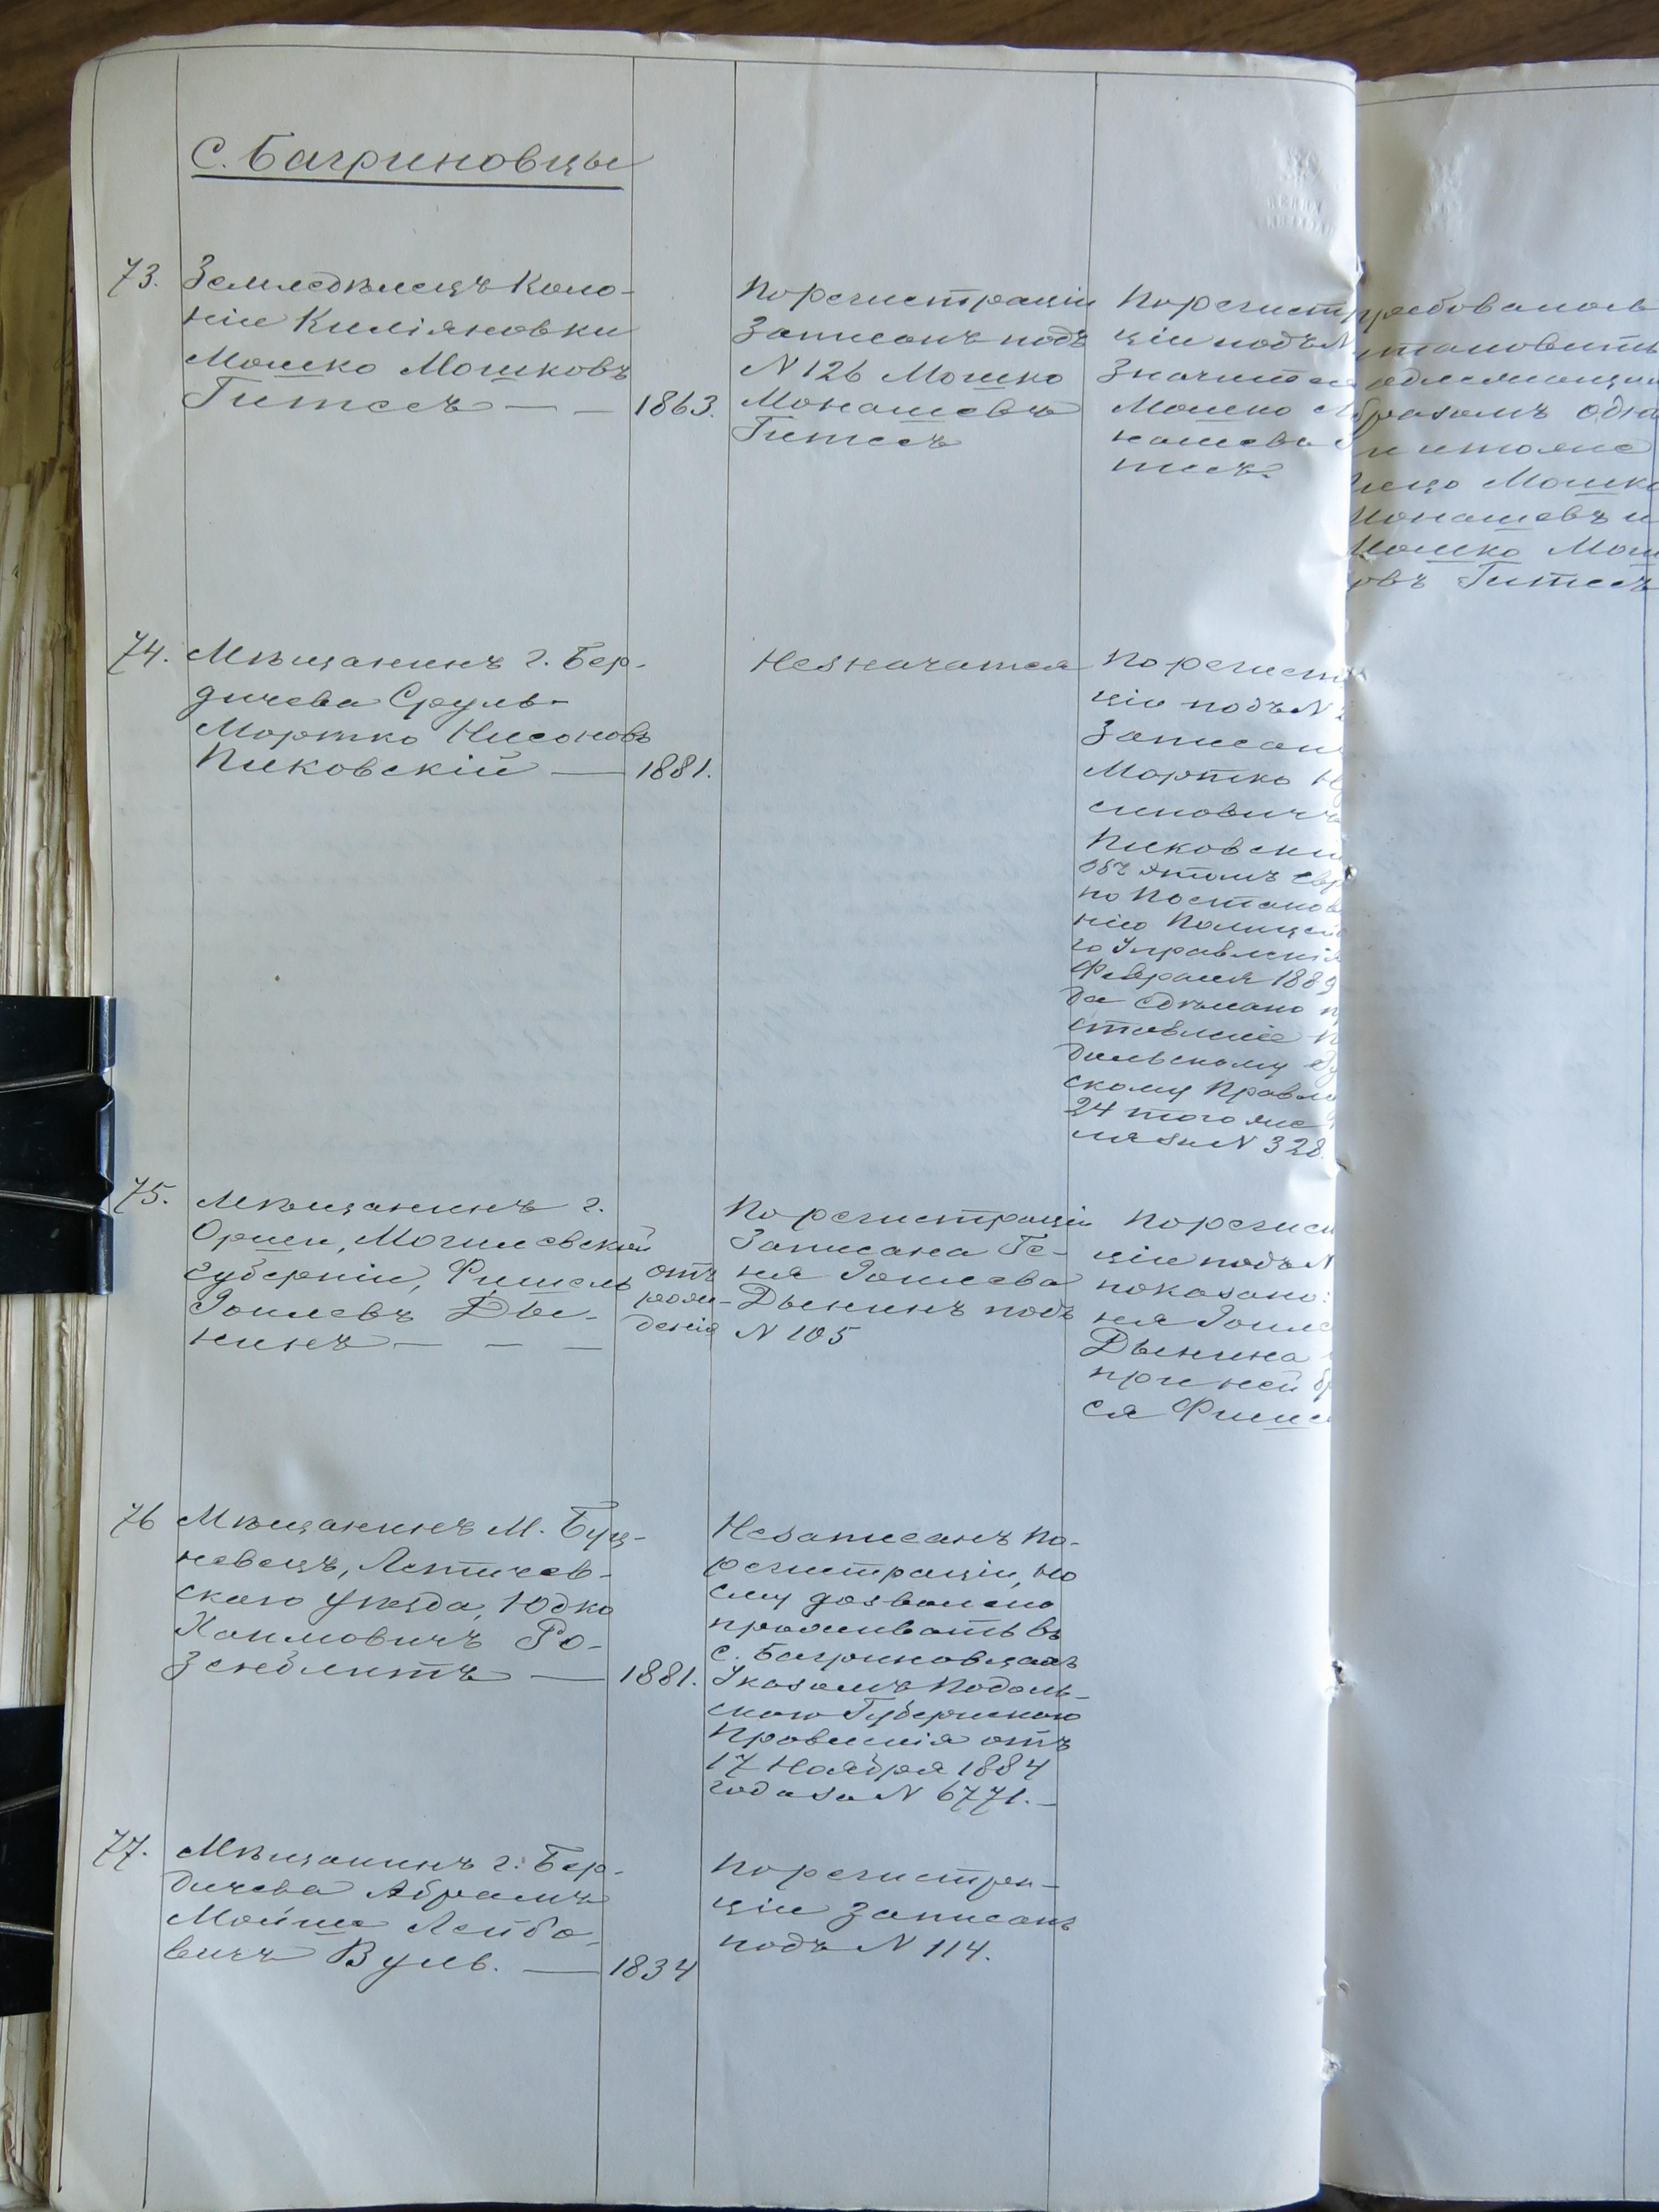 С. Багриновцы
73.
Земледѣлецъ Коло-
ніи Киліяновки
Мошко Мошковъ
Гитисъ — —
1863.
По регистраціи
Записанъ подъ
N 126 Мошко
Монашевъ
Гитисъ
По регистр
ціи подъ N
Значится
Мошко
нашевъ
тисъ.
требовалось
становить
одлежащим
бразомъ одно
и тоже
лицо Мошко
Монашевъ и
Мошко Мош
овъ Гитисъ
74.
Мѣщанинъ г. Бер-
дичева Сруль-
Мортко Нисоновъ
Пиковскій —
1881.
Не значится
По регист
ціи подъ N
Записан
Мортко
синовичъ
Пиковски
Объ этомъ евр
по Постанов
нію Полицей
го Управленія
Февраля 1889
да сдѣлано п
ставленіе П
дольскому Гу
скому Правле
24 того же
ца за N 328.
75.
Мѣщанинъ г.
Орши, Могилевской
губерніи, Фишель
Іоилевъ Ды-
нинъ — — —
отъ
рож-
денія
По регистраціи
Записана Ге-
ня Іоилева
Дынинъ подъ
N 105
По регис
ціи подъ N
показано:
ня Іоиле
Дынина
при ней б
ся Фише
76
Мѣщанинъ М. Буц-
невецъ, Летичев-
скаго уѣзда, Юдко
Хаимовичъ Ро-
зенблитъ —
1881.
Не записанъ по
регистраціи, но
ему дозволено
проживать въ
с. Багриновцахъ
Указомъ Подоль-
скаго Губернскаго
Правленія отъ
17 Ноября 1884
года за N 6771. —
77.
Мѣщанинъ г. Бер-
дичева Абрамъ
Мойше Лейбо-
вичъ Вуль. —
1834
По регистра-
ціи Записанъ
подъ N 114.